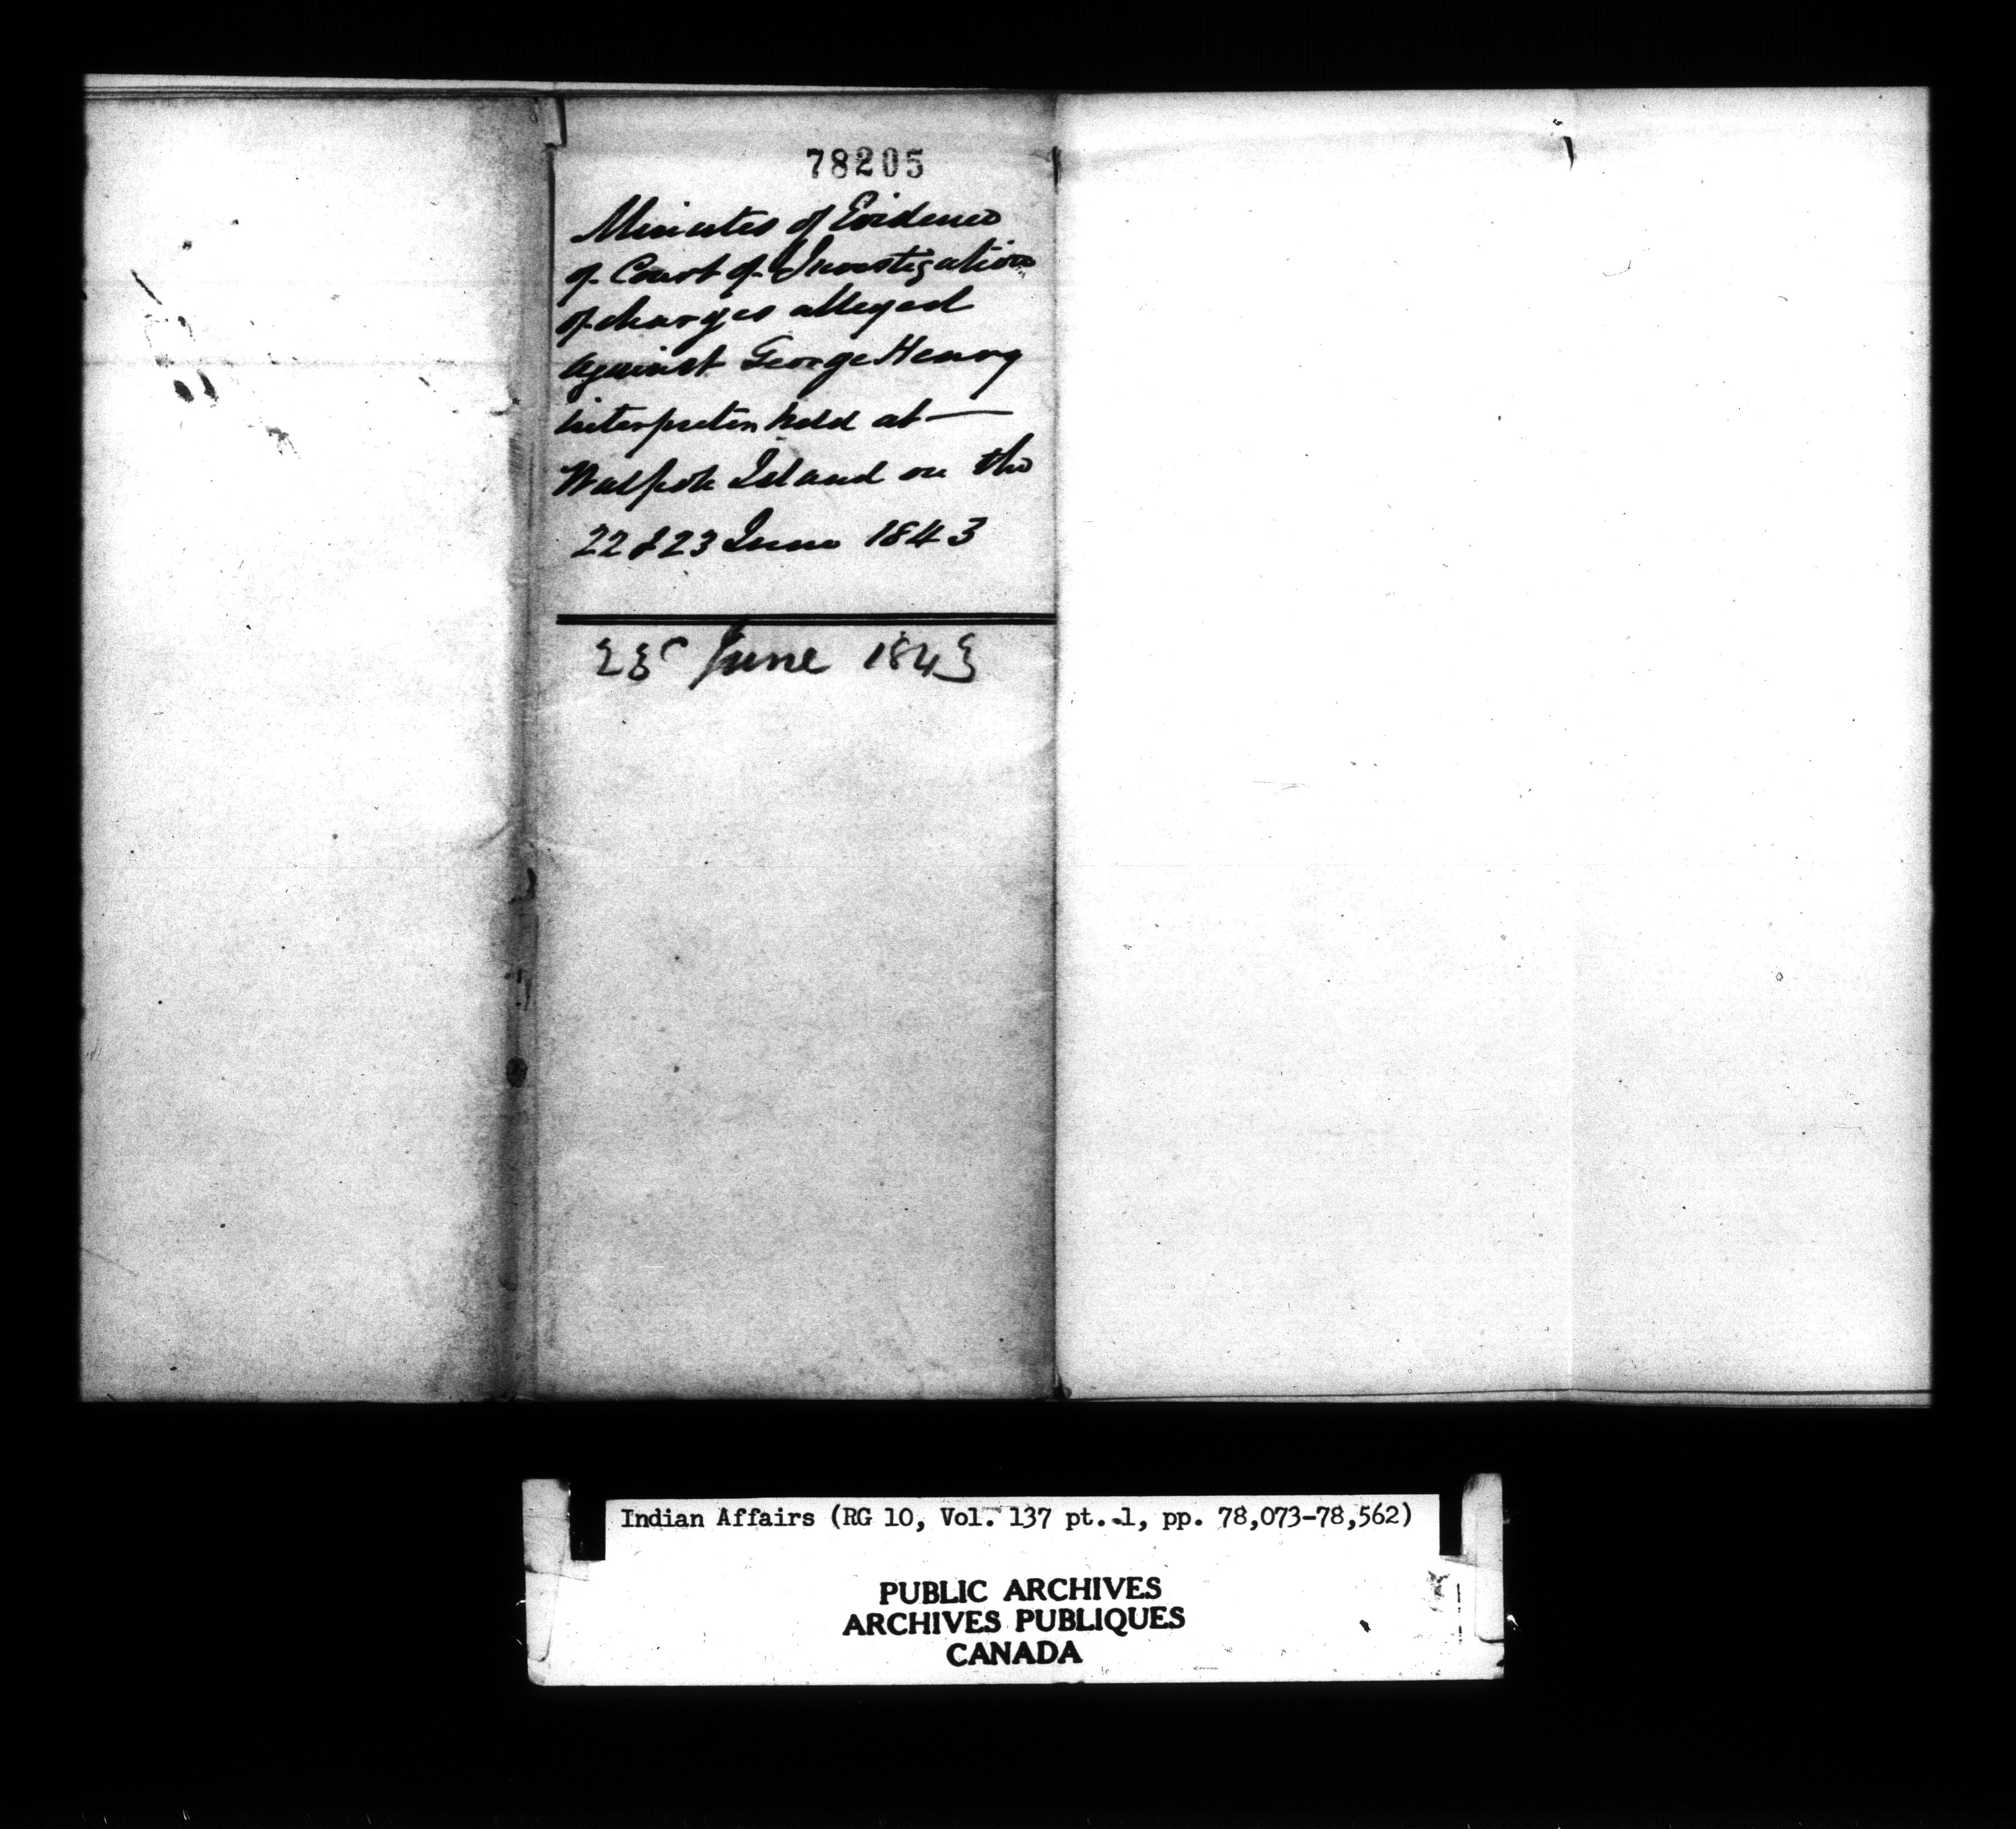 78205
Minutes of Evidence
of Court of Investigation
of charges alleged
against George Henry
interpreter held at —
Walpole Island on the
22 & 23 June 1843
June 1843
Indian Affairs (RG 10, Vol. 137 pt. 1, pp. 78,073-78,562)
PUBLIC ARCHIVES
ARCHIVES PUBLIQUES
CANADA